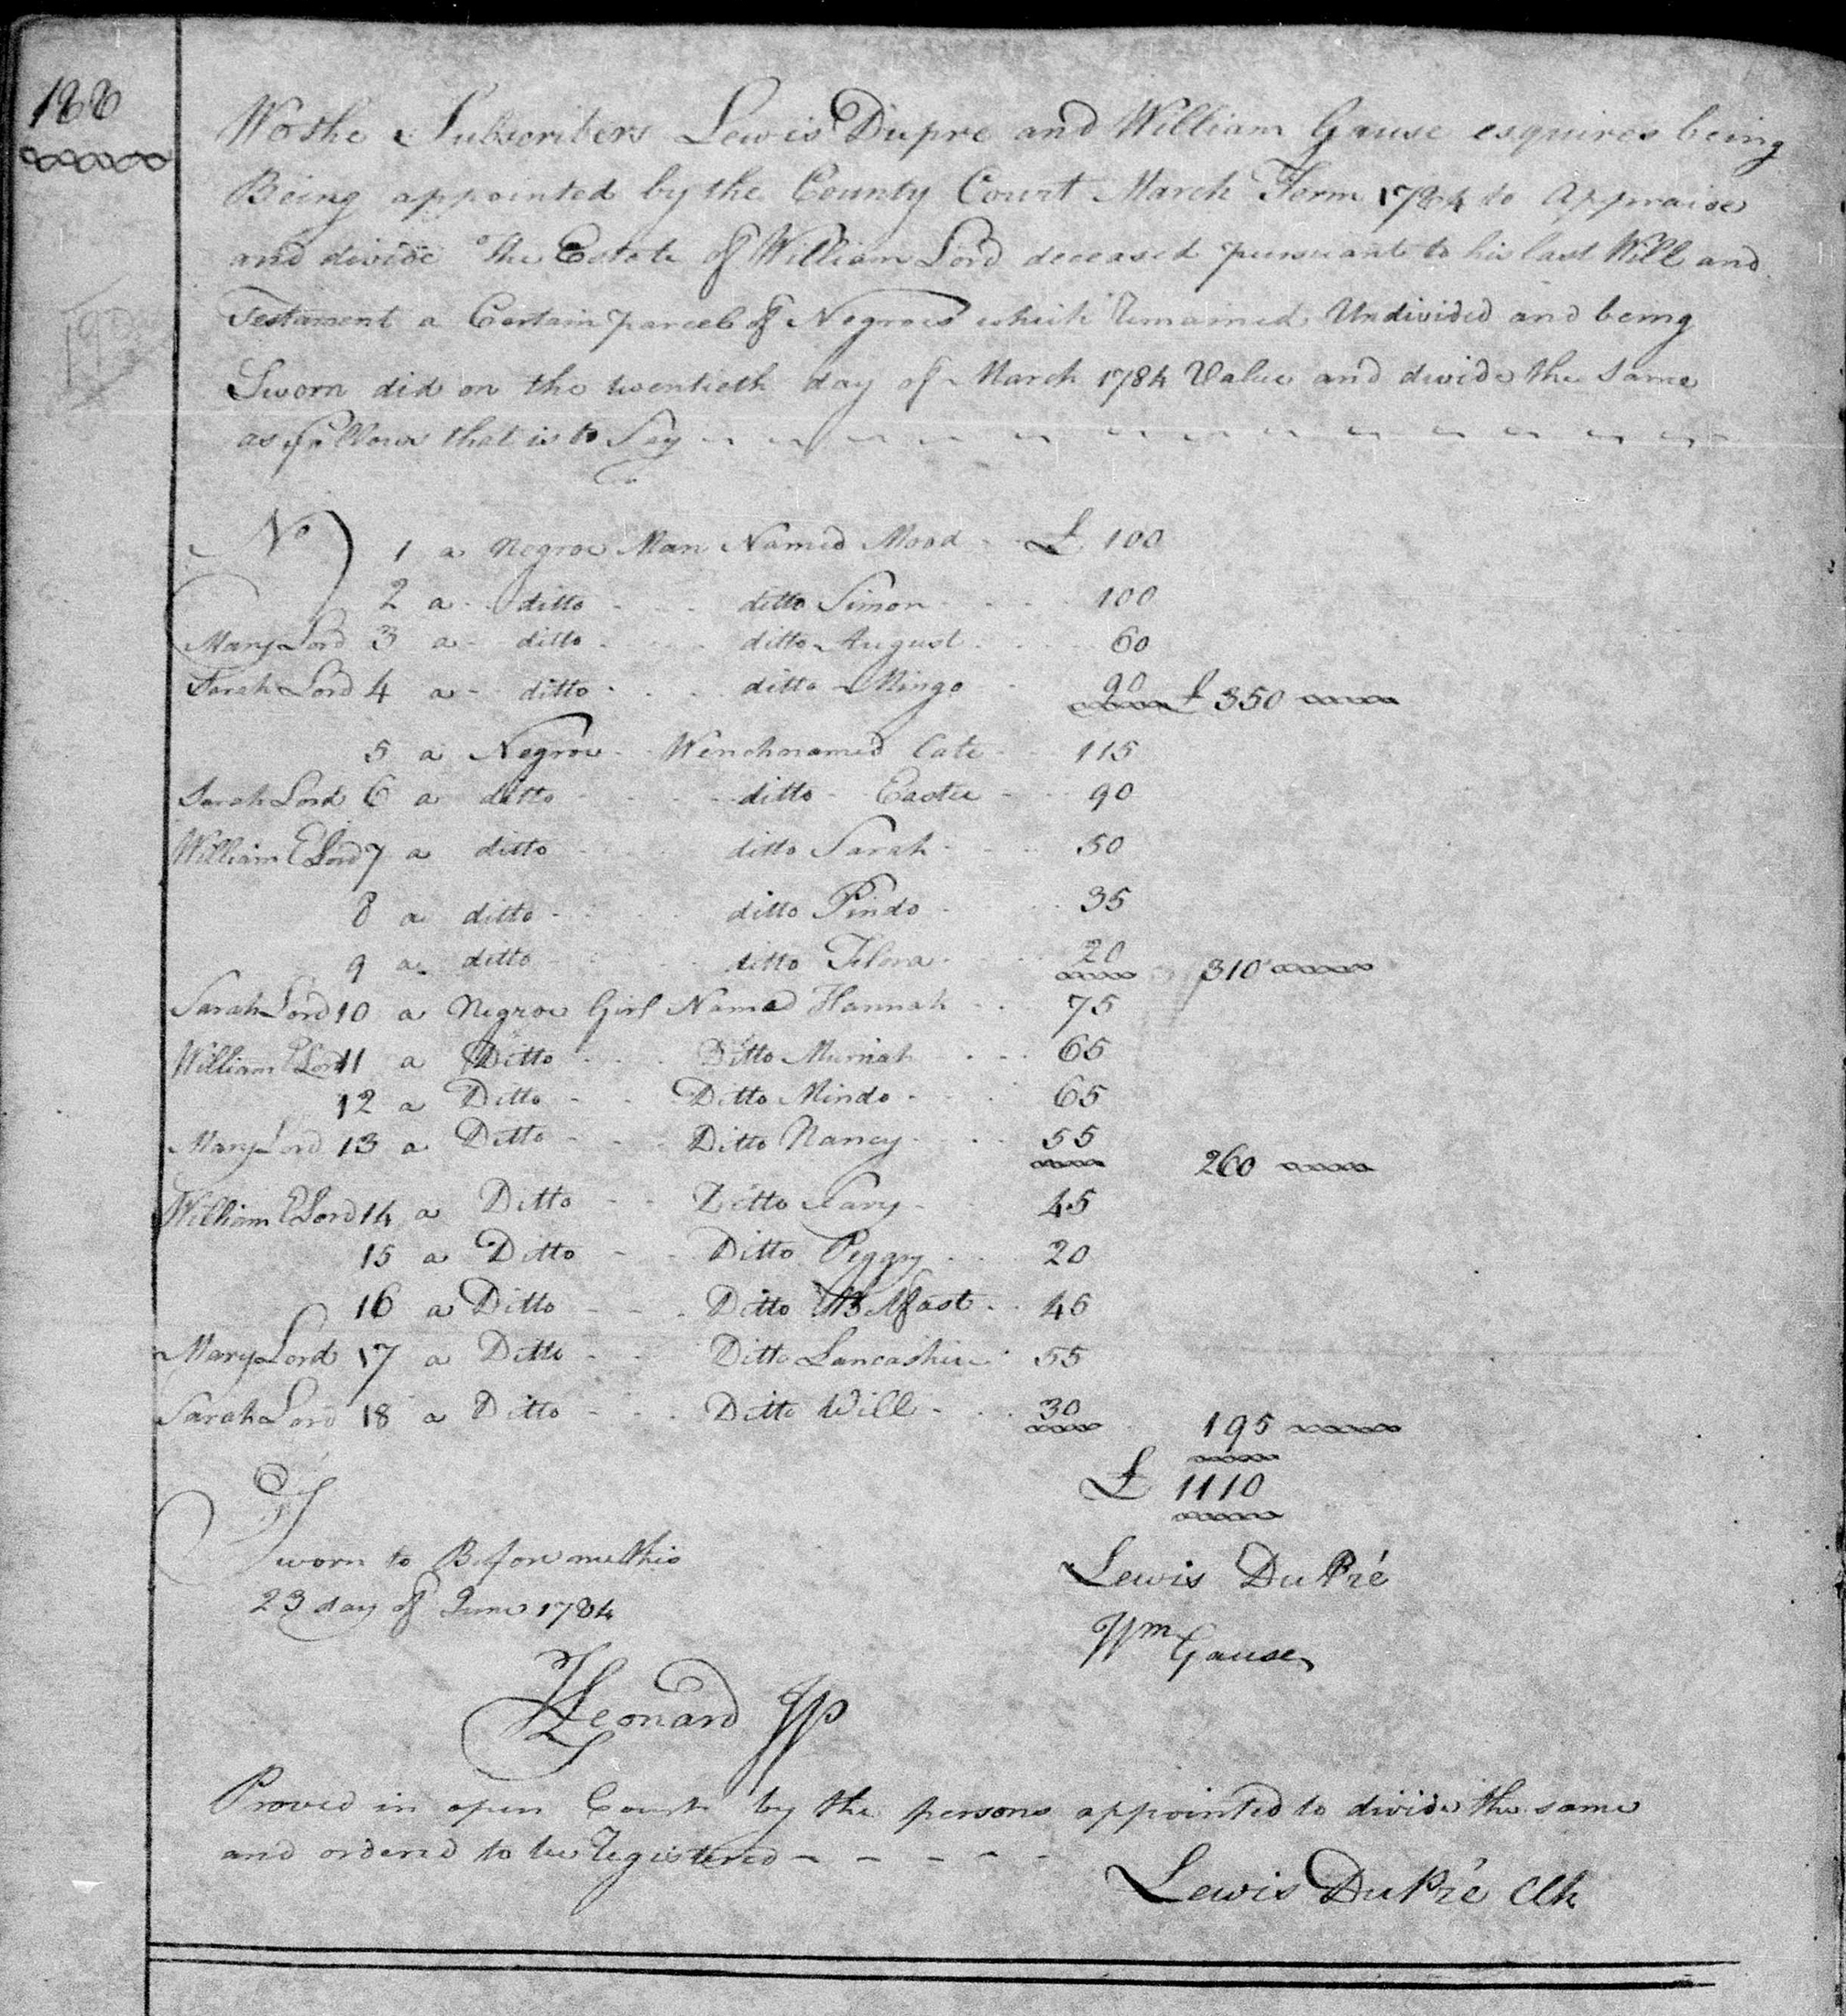 188
We the Subscribers Lewis Dupre and William Gause esquires being
Being appointed by the County Court March Term 1784 to Appraise
and divide the Estate of William Lord deceased pursuant to his last Will and
Testament a Certain parcel of Negroes which Remained Undivided and being
Sworn did on the twentieth day of March 1784 Value and divide the same
as follows that is to Say
No 1 a Negroe Man Named Mood £ 100
2 a ditto ditto Simon 100
Mary Lord 3 a ditto ditto August 60
Sarah Lord 4 a ditto ditto Mingo 90 £ 350
5 a Negroe Wench named Cate 115
Sarah Lord 6 a ditto ditto Easter 90
William E Lord 7 a ditto ditto Sarah 50
8 a ditto ditto Pindo 35
9 a ditto ditto Flora 20 310
Sarah Lord 10 a Negroe Girl Named Hannah 75
William E Lord 11 a Ditto Ditto Murriah 65
12 a Ditto Ditto Mindo 65
Mary Lord 13 a Ditto Ditto Nancy 55 260
William E Lord 14 a Ditto Ditto 45
15 a Ditto Ditto Peggy 20
16 a Ditto Ditto Belfast 45
Mary Lord 17 a Ditto Ditto Lancashire 55
Sarah Lord 18 a Ditto Ditto Will 30 195
£ 1110
Sworn to Before me this
23 day of June 1784
Lewis DuPré
Wm Gause
Leonard JP
Proved in open Court by the persons appointed to divide the same
and ordered to be Registered
Lewis DuPré Clk